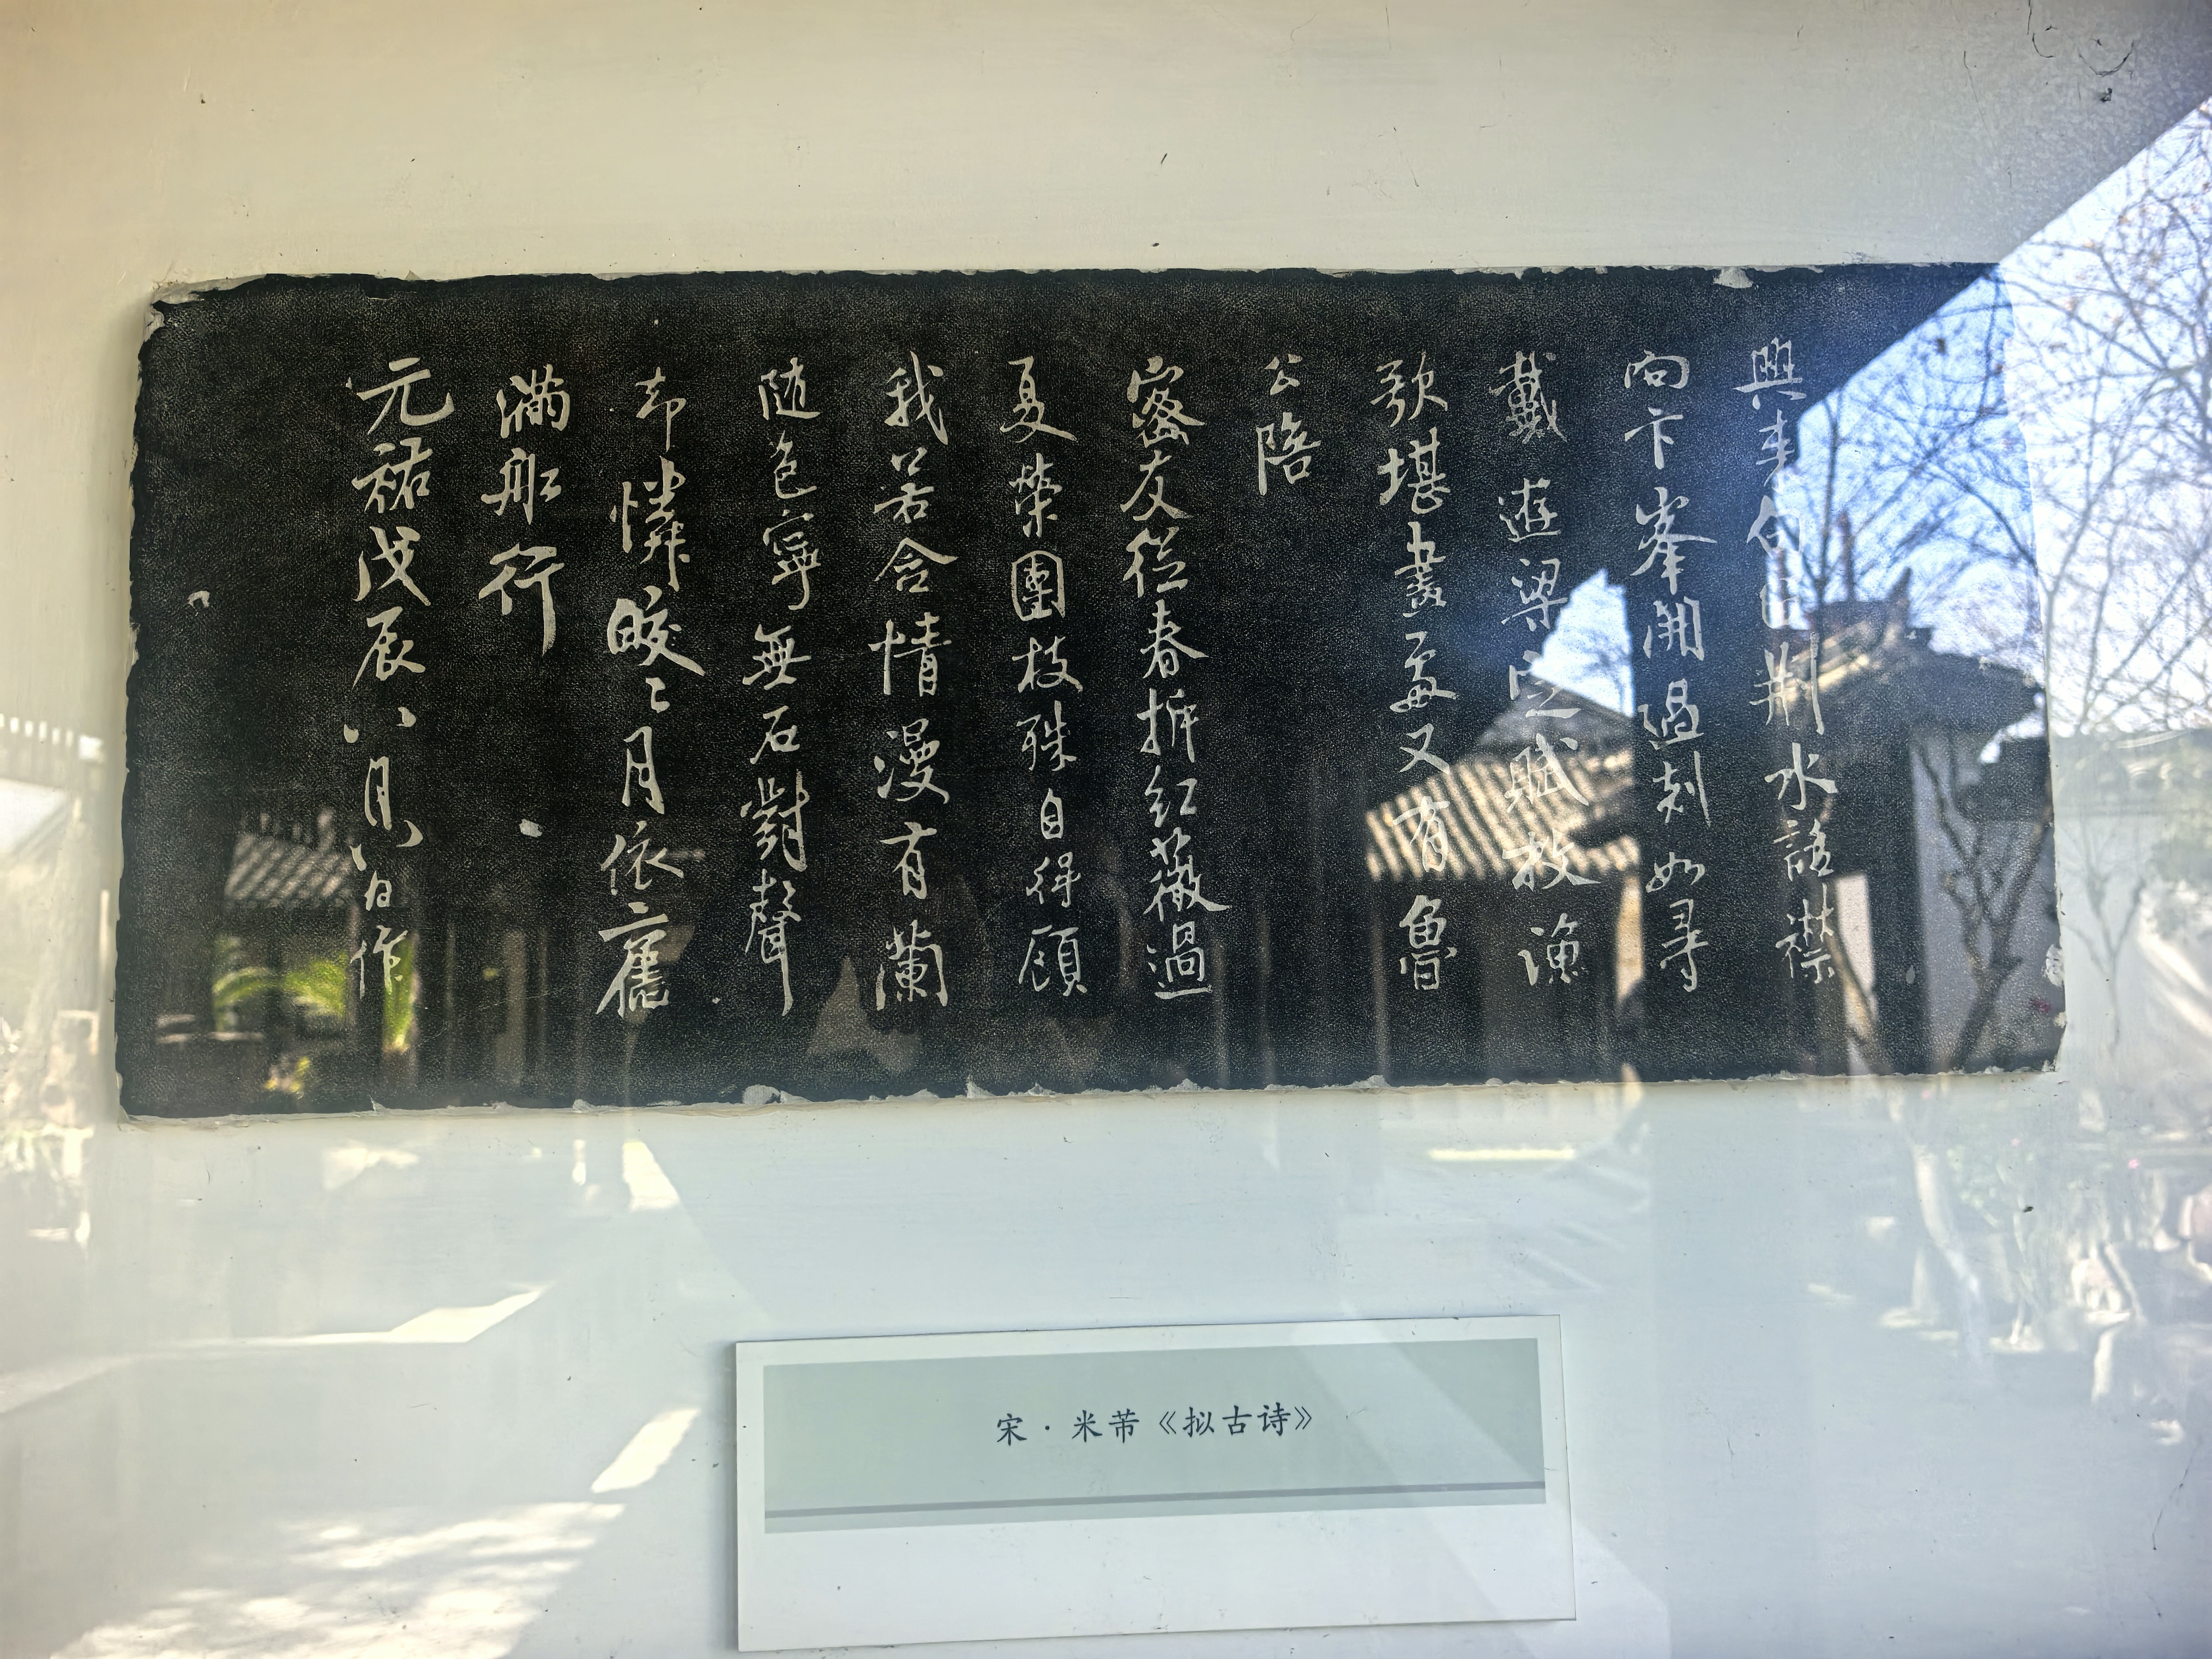 興来句留荆水話襟
向卞峯開過剡如尋
戴遊梁定賦枚漁
歌堪畫處又有魯
公陪
密友從春拆紅薇過
夏榮團枝殊自得顧
我若含情漫有蘭
隨色寧無石對聲
却憐皎々月依舊
滿船行
元祐戊辰八月八日作
宋·米芾《拟古诗》